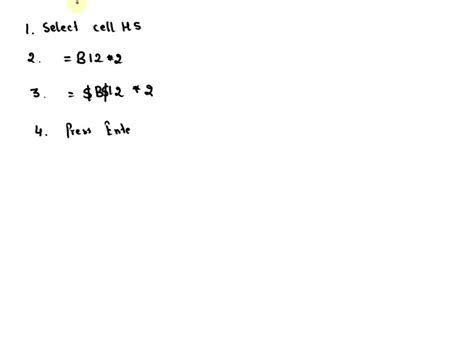 1. Select cell H5
2. = B12 *2
3. = $B$12 * 2
4. Press Ente